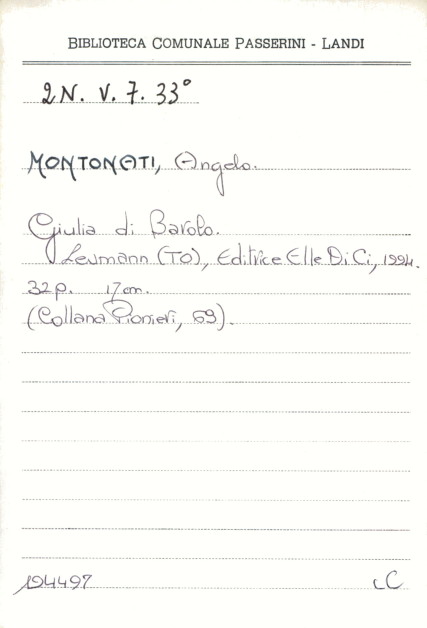 BIBLIOTECA COMUNALE PASSERINI - LANDI
2 N. V. 7. 33°
MONTONATI, Angelo.
Giulia di Barolo.
Leumann (TO), Editrice Elle Di Ci, 1994.
32 p. 17 cm.
(Collana Pionieri, 69).
194497